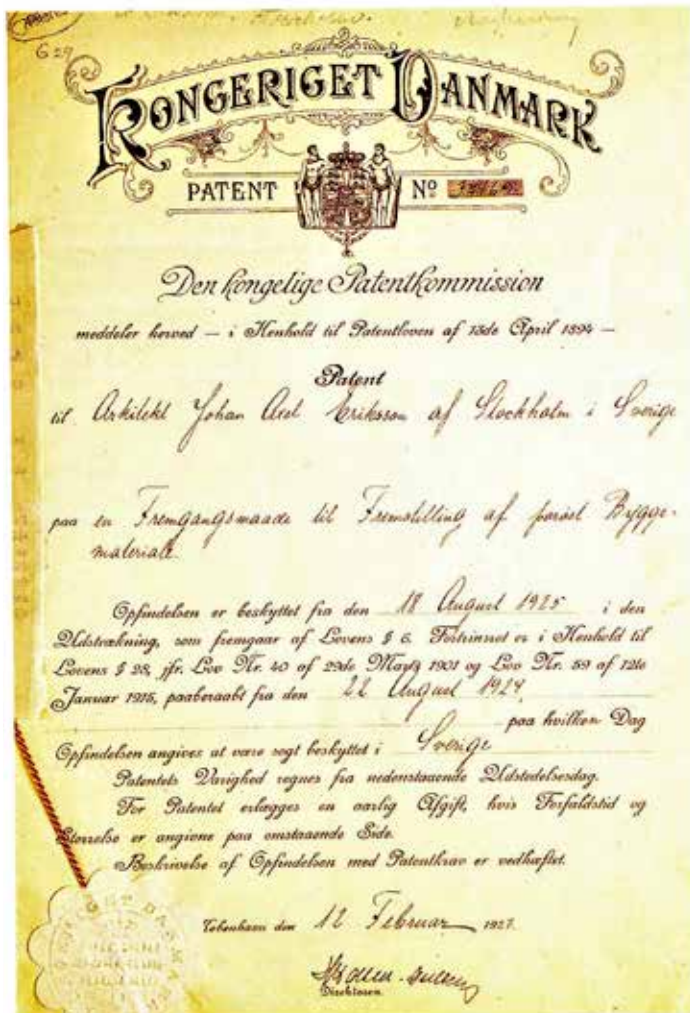 G 29
KONGERIGET DANMARK
PATENT Nº
Den kongelige Patentkommission
meddeler herved — i Henhold til Patentloven af 13de April 1894 —
Patent
til Arkitekt Johan Axel Eriksson af Stockholm i Sverige
paa en Fremgangsmaade til Fremstilling af porøst Bygge-
materiale.
Opfindelsen er beskyttet fra den 18 August 1925 i den
Udstrækning, som fremgaar af Lovens § 6. Fortrinnet er i Henhold til
Lovens § 28, jfr. Lov Nr. 40 af 29de Marts 1901 og Lov Nr. 59 af 12te
Januar 1915, paaberaabt fra den 22 August 1924
paa hvilken Dag
Opfindelsen angives at være søgt beskyttet i Sverige
Patentets Varighed regnes fra nedenstaaende Udstedelsesdag.
For Patentet erlægges en aarlig Afgift, hvis Forfaldstid og
Størrelse er angivne paa omstaaende Side.
Beskrivelse af Opfindelsen med Patentkrav er vedhæftet.
København den 12 Februar 1927.
Direktøren.